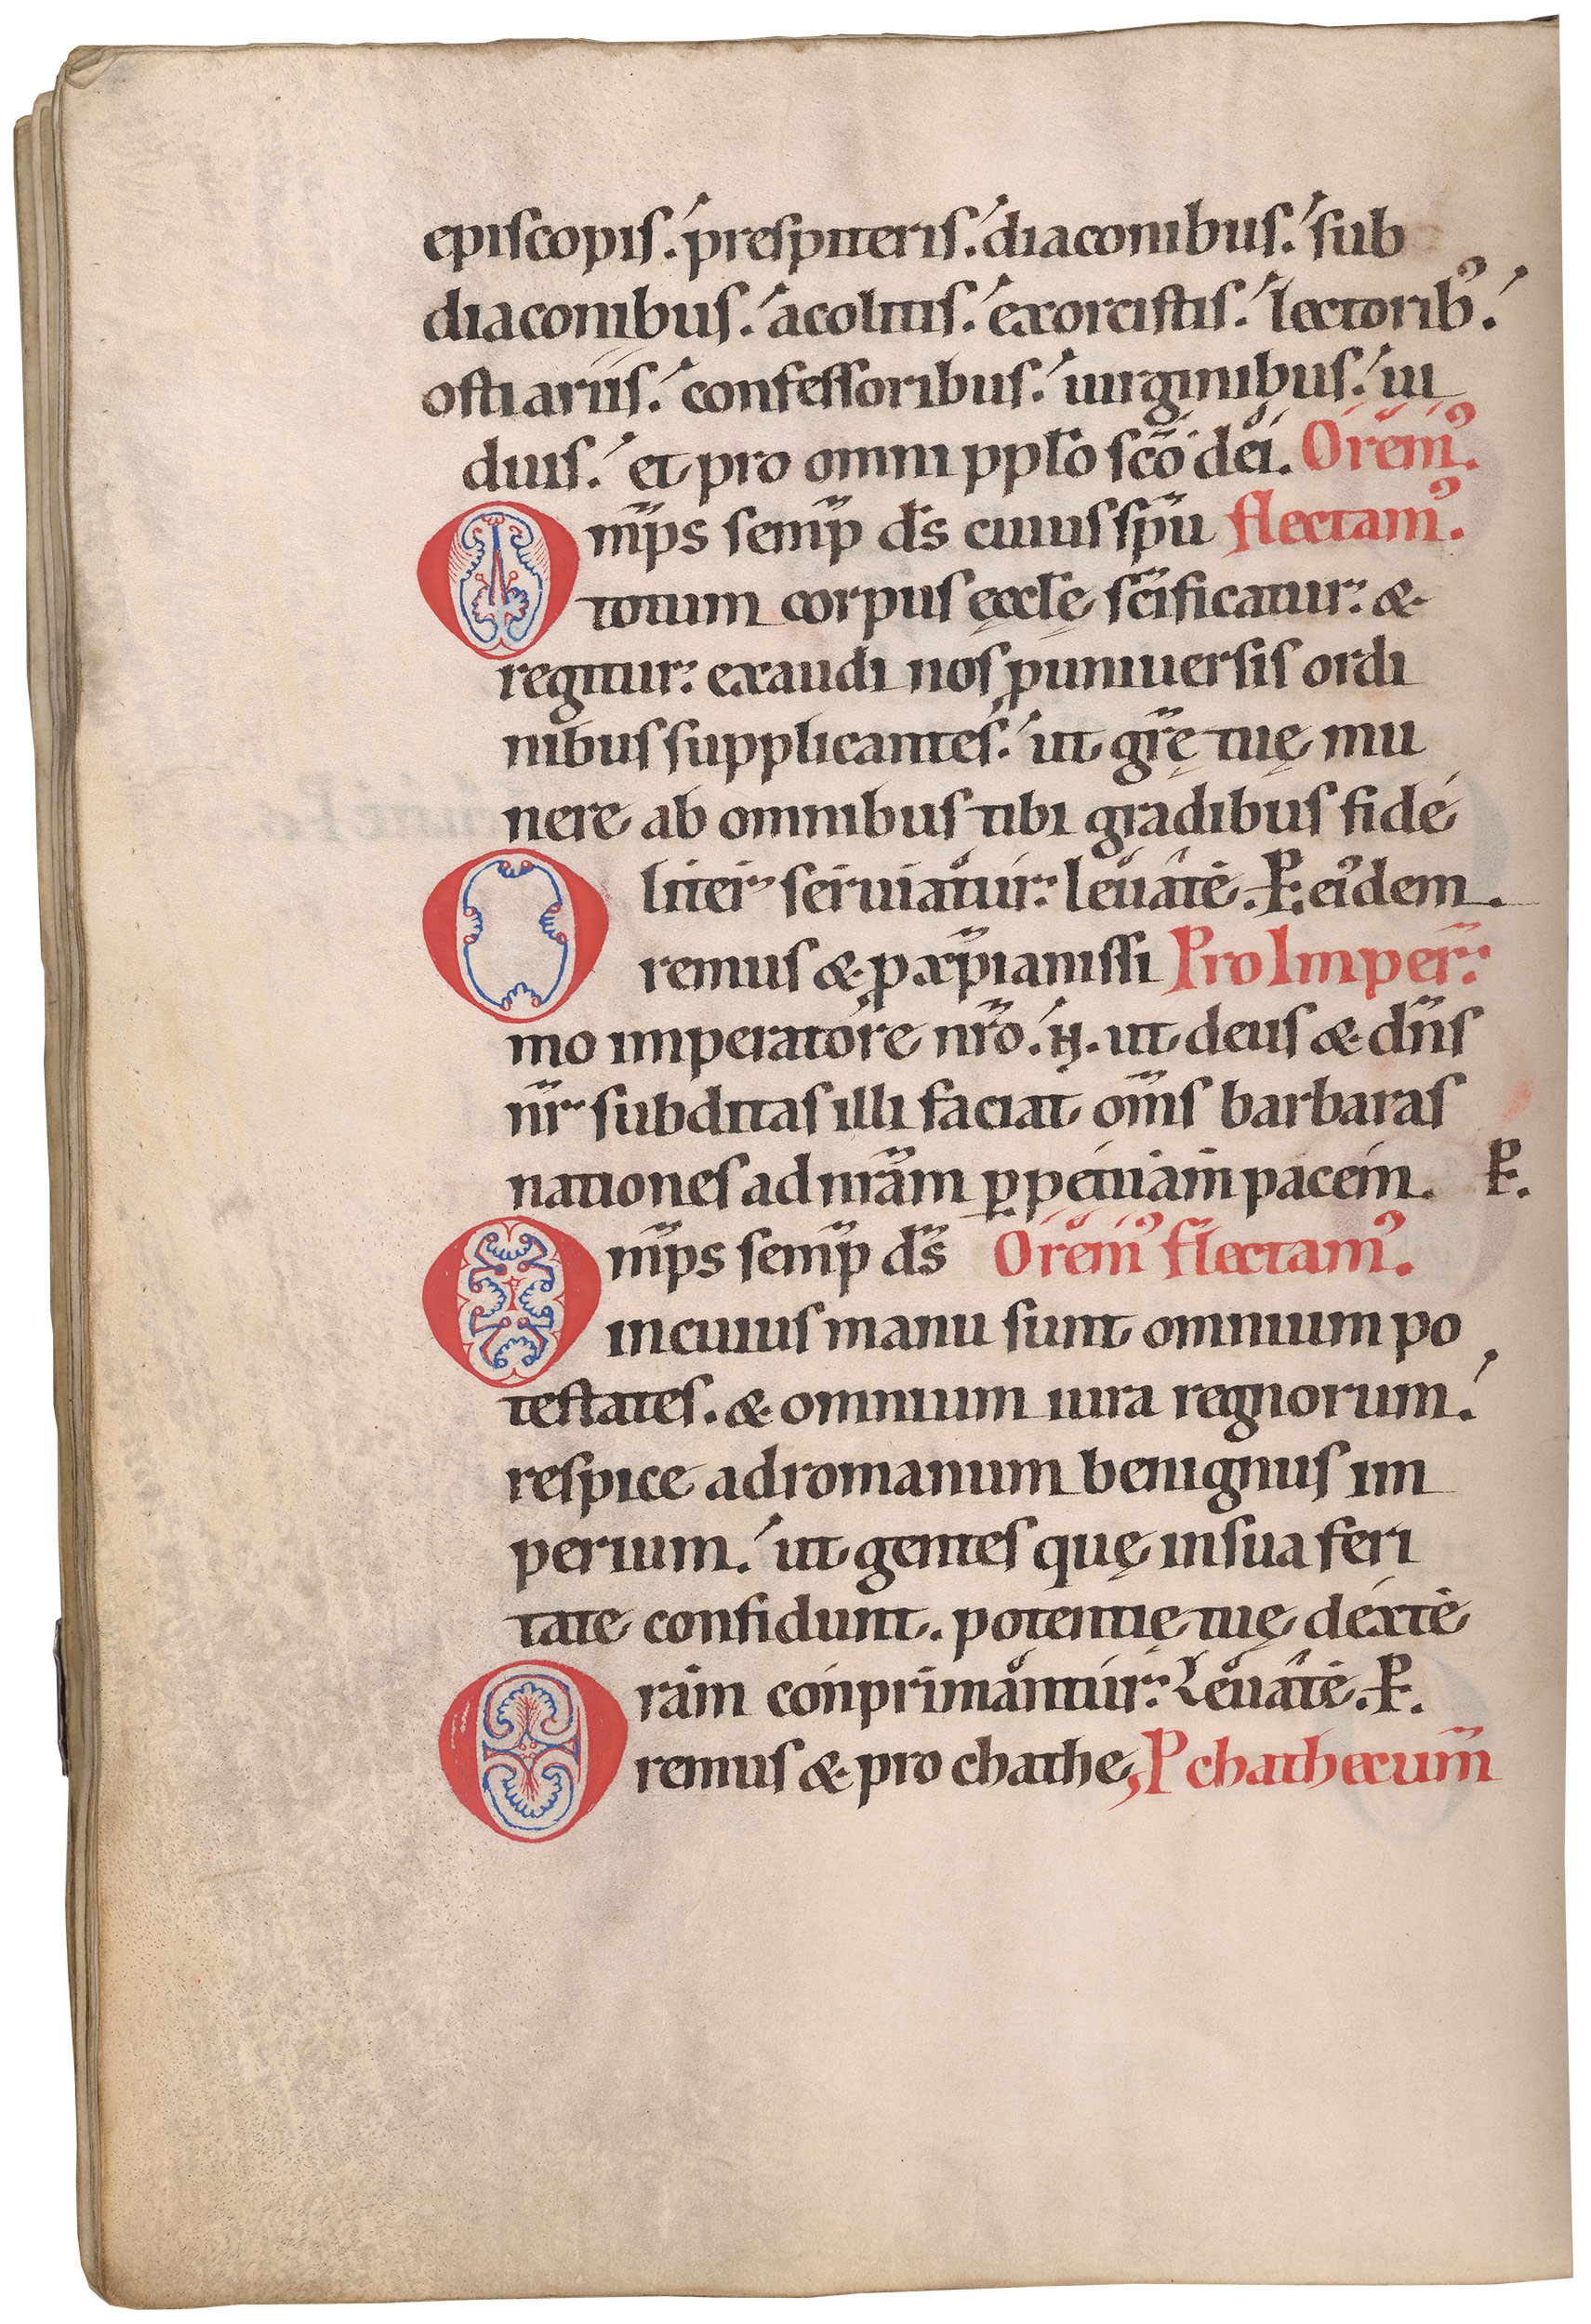 episcopis. prespiteris. diaconibus. sub
diaconibus. acolitis. exorcistis. lectorib᾿.
ostiariis. confessoribus. uirginibus. ui
duis. et pro omni pplo sc̄o dei. Orem᾿.
Om̄ps semp̄ ds̄ cuius sp̄u flectam᾿.
totum corpus ęccl̄ę sc̄ificatur: &
regitur: exaudi nos ꝓuniuersis ordi
nibus supplicantes. ut gr̄ę tuę mu
nere ab omnibus tibi gradibus fide
liter seruiatur: leuate. P. eidem.
Oremus & ꝓ xp̄ianissi Pro Imper̄:
mo imperatore nr̄o. N. ut deus & dn̄s
nr̄ subditas illi faciat om̄s barbaras
nationes ad nr̄am ꝑpetuam pacem. P.
Om̄ps semp̄ ds̄ Orem᾿ flectam᾿.
in cuius manu sunt omnium po
testates. & omnium iura regnorum.
respice ad romanum benignus im
perium. ut gentes quę in sua feri
tate confidunt. potentię tuę dexte
ram conprimantur: Leuate. P.
Oremus & pro chathe, P chathecum̄